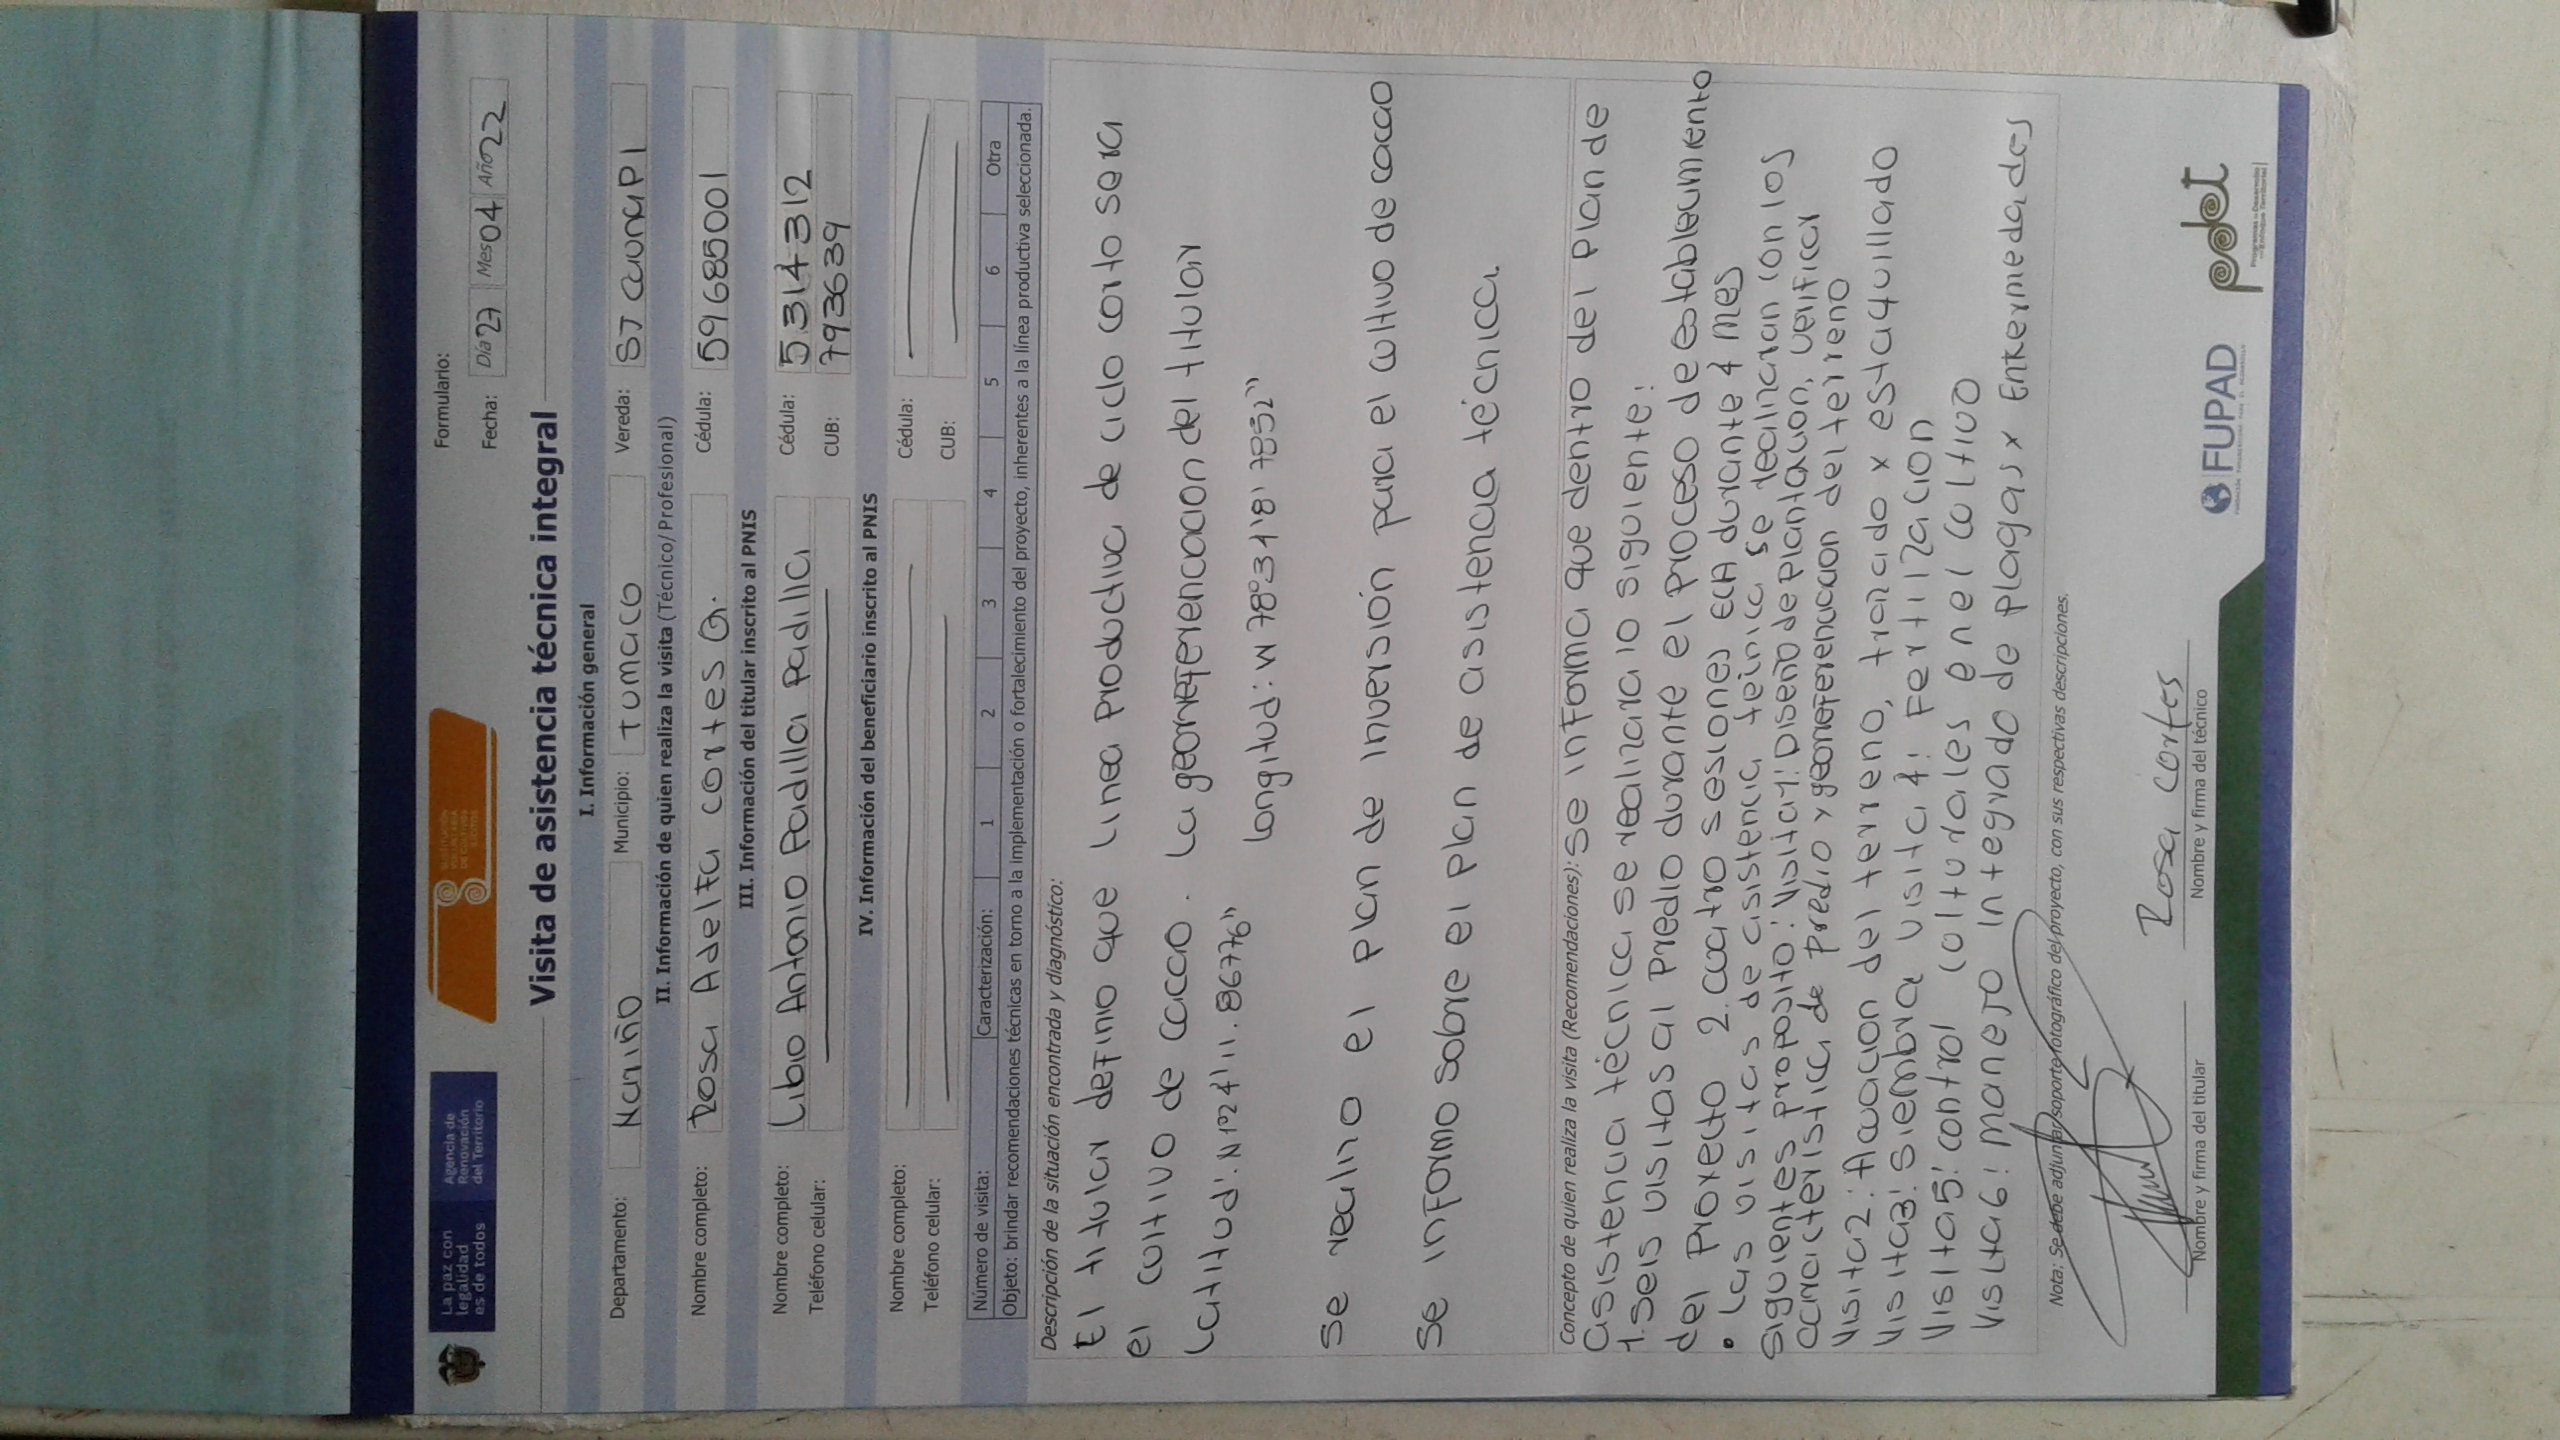 La paz con
legalidad
es de todos
Agencia de
Renovación
del Territorio
SUSTITUCIÓN
VOLUNTARIA
DE CULTIVOS
ILÍCITOS
Formulario:
Fecha: Día 27 Mes 04 Año 22
Visita de asistencia técnica integral
I. Información general
Departamento: Nariño Municipio: Tumaco Vereda: SJ CaunaPI
II. Información de quien realiza la visita (Técnico/Profesional)
Nombre completo: Rosa Adelfa cortes Q. Cédula: 59685001
III. Información del titular inscrito al PNIS
Nombre completo: Libio Antonio Padilla Padilla Cédula: 5314312
Teléfono celular: CUB: 793639
IV. Información del beneficiario inscrito al PNIS
Nombre completo: Cédula:
Teléfono celular: CUB:
Número de visita: Caracterización: 1 2 3 4 5 6 Otra
Objeto: brindar recomendaciones técnicas en torno a la implementación o fortalecimiento del proyecto, inherentes a la línea productiva seleccionada.
Descripción de la situación encontrada y diagnóstico:
El titular definio que linea Productiva de ciclo corto sera
el cultivo de cacao. La georreferenciacion del titular
Latitud: N1°24'11.86776" Longitud: W 78°31'81 7852"
Se realino el plan de inversión para el cultivo de cacao
Se informo sobre el plan de asistencia técnica.
Concepto de quien realiza la visita (Recomendaciones): Se informa que dentro del Plan de
asistencia técnica se realizara lo siguiente:
1. Seis visitas al Predio durante el Proceso de establecimiento
del Proyecto 2. cuatro sesiones ECA durante 4 mes
• Las visitas de asistencia técnica se realizaran con los
siguientes proposito: Visita 1: Diseño de Plantacion, verificar
caracteristica de Predio y georreferenciacion del terreno
Visita 2: Adecuacion del terreno, trazado y estaquillado
Visita 3: Siembra visita 4: Fertilizacion
Visita 5: control culturales en el cultivo
Visita 6: manejo integrado de plagas y Enfermedades
Nota: Se debe adjuntar soporte fotográfico del proyecto, con sus respectivas descripciones.
Rosa cortes
Nombre y firma del titular Nombre y firma del técnico
FUPAD
pdet
Programas de Desarrollo
con Enfoque Territorial